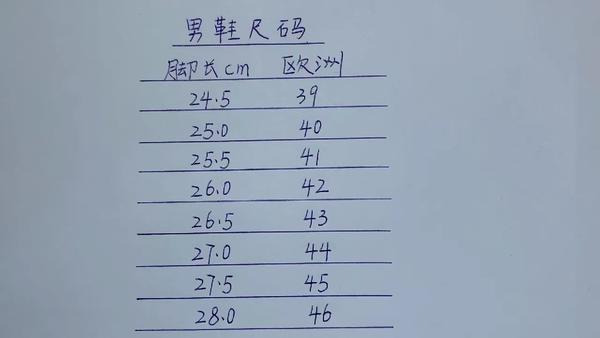 男鞋尺码
脚长cm 欧洲
24.5 39
25.0 40
25.5 41
26.0 42
26.5 43
27.0 44
27.5 45
28.0 46